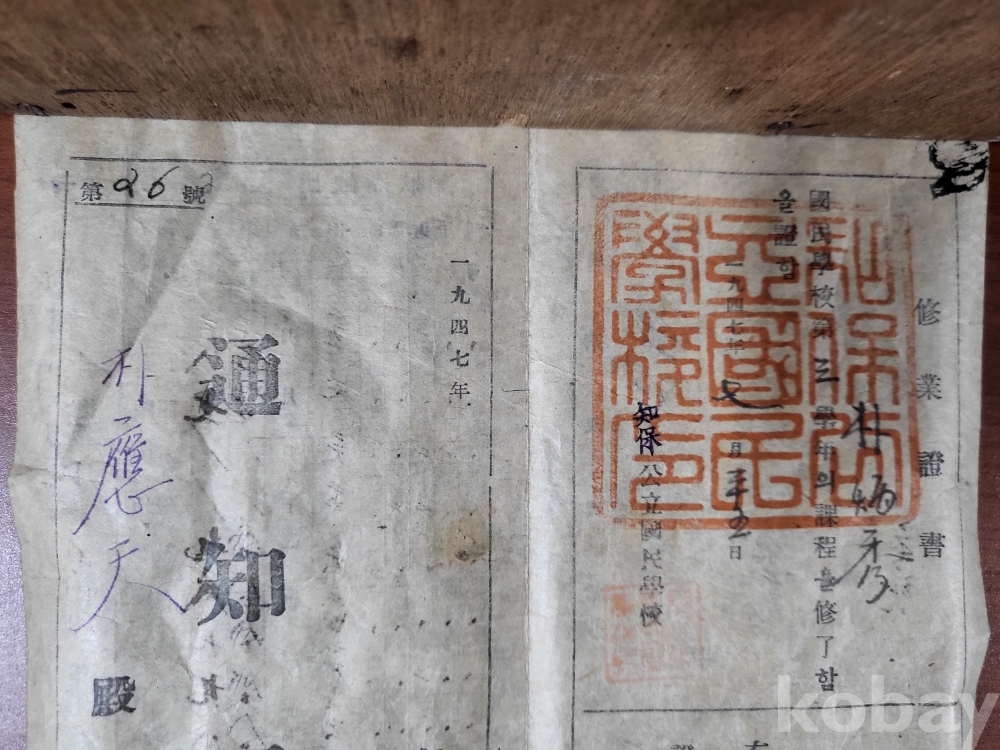 修業證書
朴炳彦
國民學校第三學年의課程을修了함
을證함
一九四七年七月二十五日
知保公立國民學校
知保公立國民學校印
一九四七年
通知
第26號
朴應天
殿
kobay